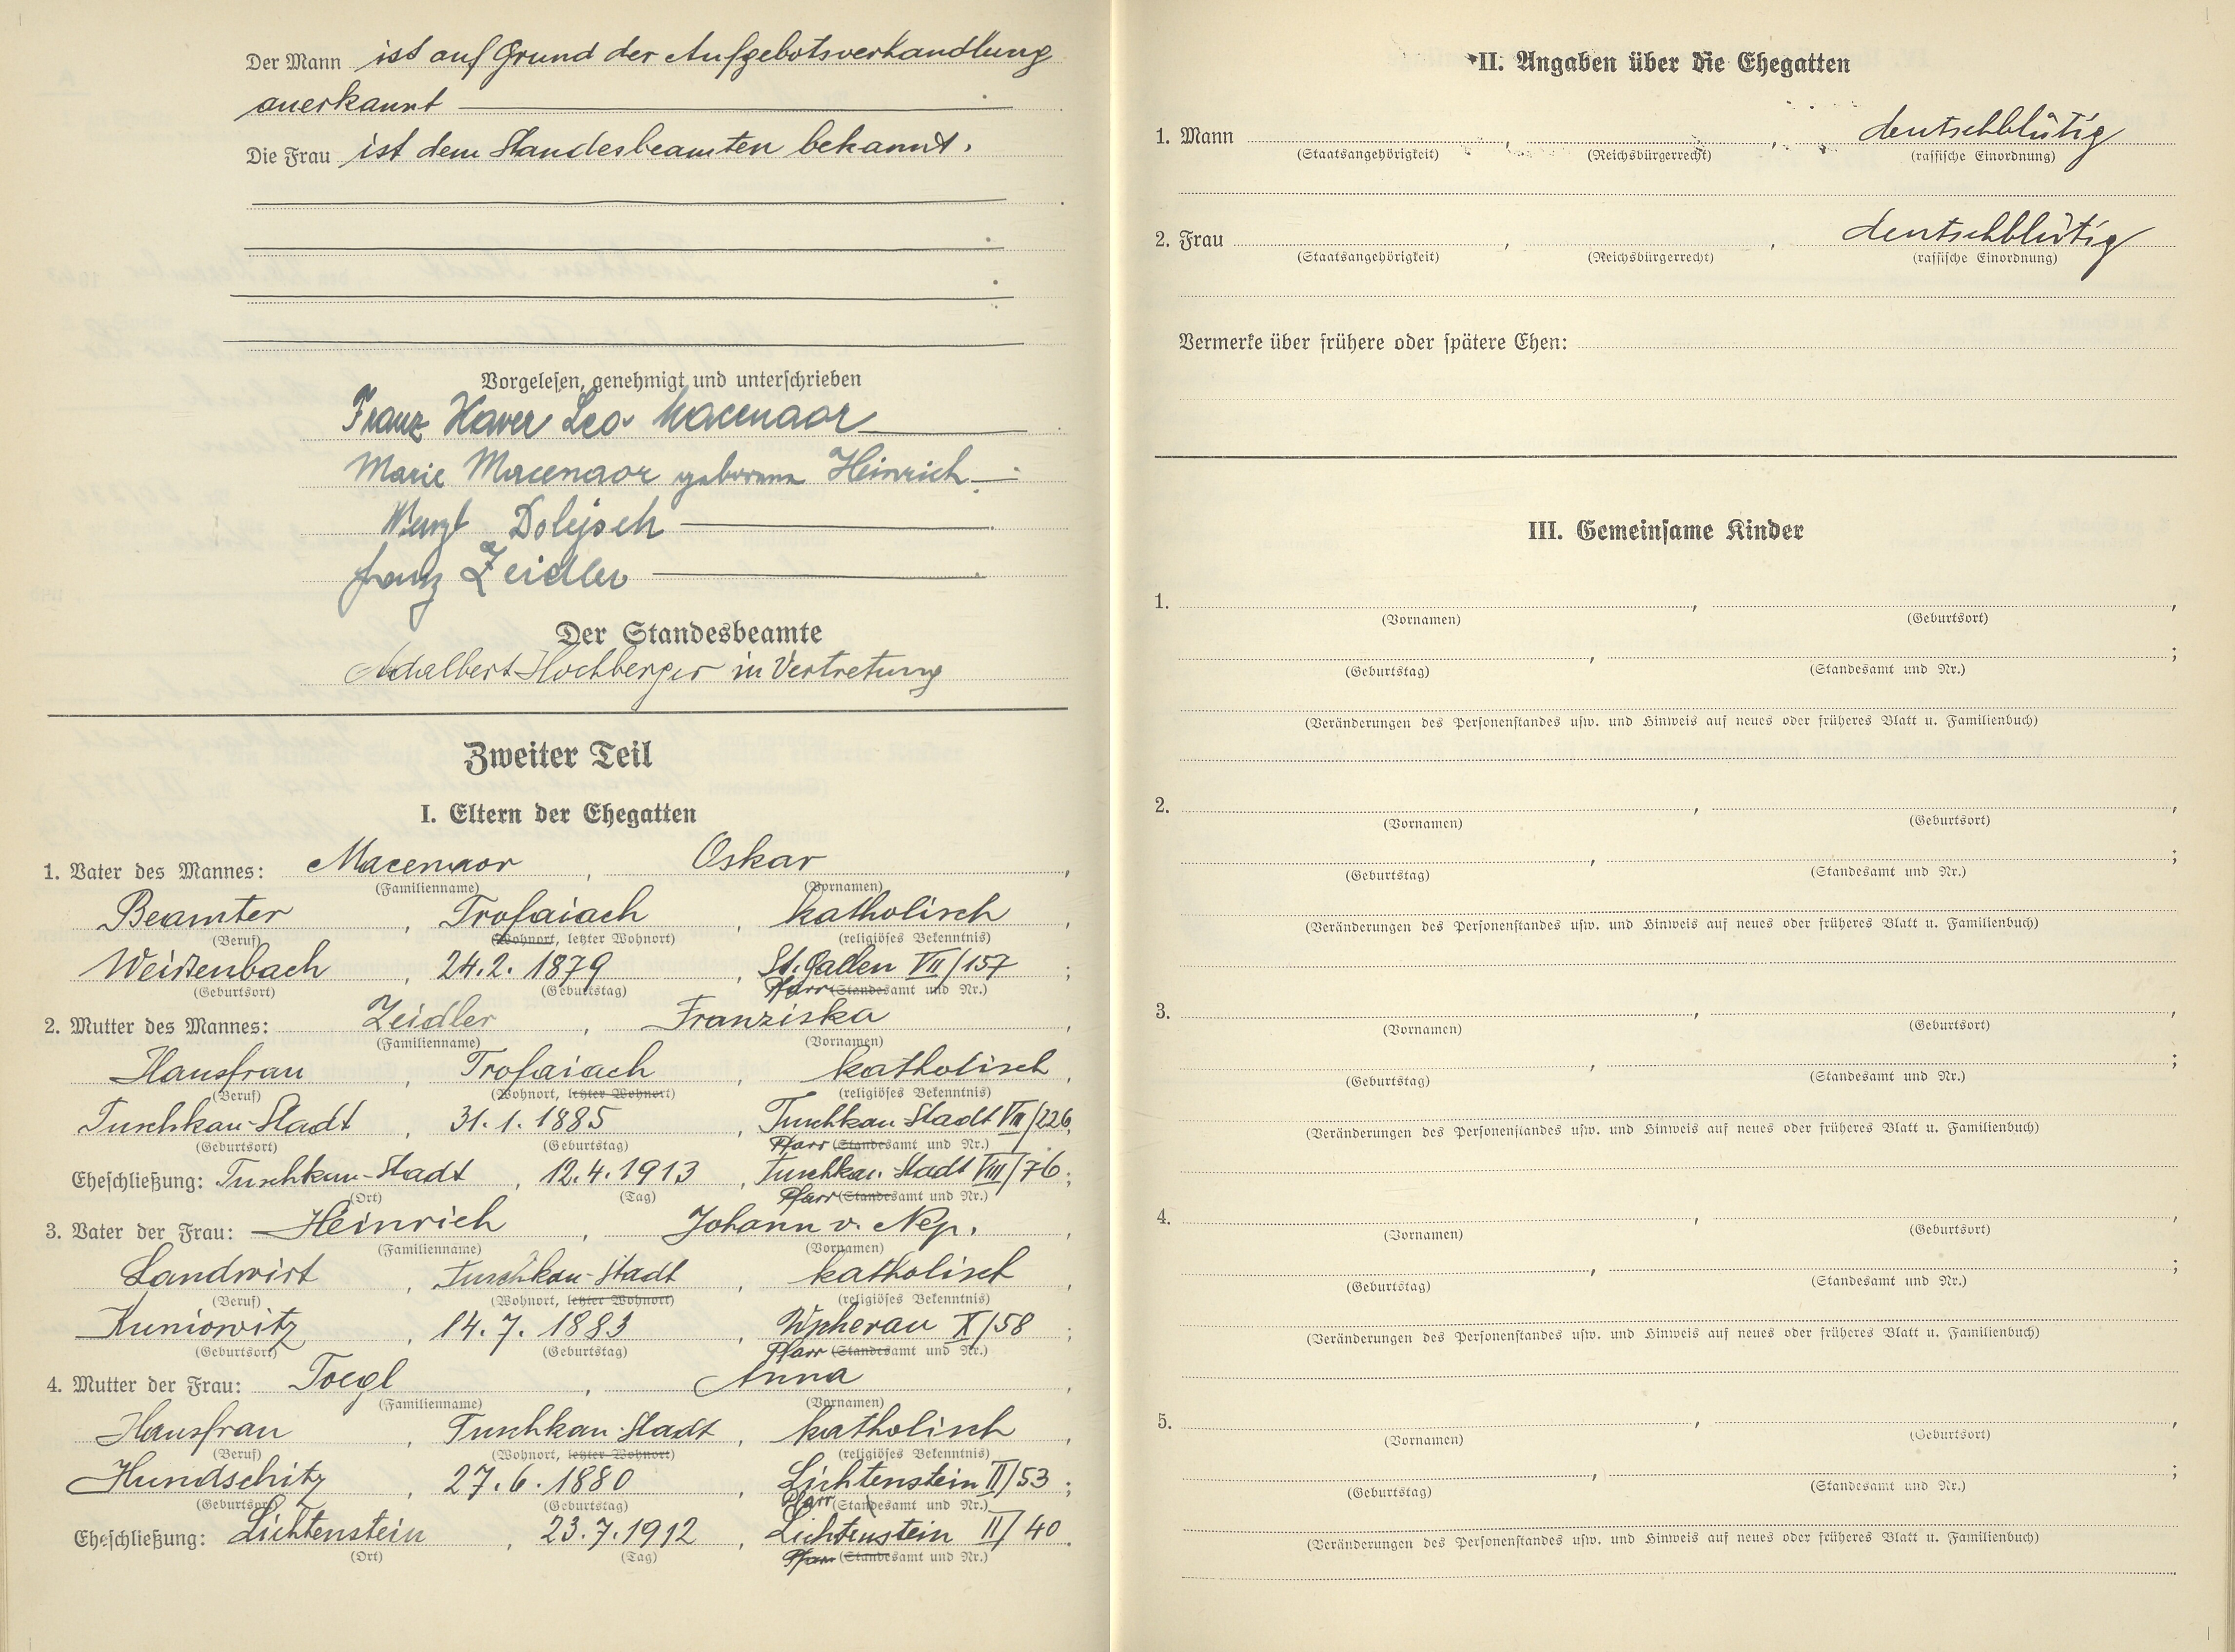 Der Mann ist auf Grund der Aufgebotsverhandlung
anerkannt
Die Frau ist dem Standesbeamten bekannt.
Vorgelesen, genehmigt und unterschrieben
Franz Xaver Leo Macenaor
Marie Macenaor geborene Heinrich
Wenzl Dolejsch
Franz Zeidler
Der Standesbeamte
Adalbert Hochberger in Vertretung
Zweiter Teil
I. Eltern der Ehegatten
1. Vater des Mannes: Macenaor, Oskar,
(Familienname) (Vornamen)
Beamter, Trofaiach, katholisch,
(Beruf) (Wohnort, letzter Wohnort) (religiöses Bekenntnis)
Weißenbach, 24.2.1879, St. Gallen VII/157;
(Geburtsort) (Geburtstag) Pfarr (Standesamt und Nr.)
2. Mutter des Mannes: Zeidler, Franziska,
(Familienname) (Vornamen)
Hausfrau, Trofaiach, katholisch,
(Beruf) (Wohnort, letzter Wohnort) (religiöses Bekenntnis)
Tuschkau-Stadt, 31.1.1885, Tuschkau Stadt VII/226,
(Geburtsort) (Geburtstag) Pfarr (Standesamt und Nr.)
Eheschließung: Tuschkau-Stadt, 12.4.1913, Tuschkau-Stadt VIII/76;
(Ort) (Tag) Pfarr (Standesamt und Nr.)
3. Vater der Frau: Heinrich, Johann v. Nep.,
(Familienname) (Vornamen)
Landwirt, Tuschkau-Stadt, katholisch,
(Beruf) (Wohnort, letzter Wohnort) (religiöses Bekenntnis)
Kuniowitz, 14.7.1883, Wscherau X/58;
(Geburtsort) (Geburtstag) Pfarr (Standesamt und Nr.)
4. Mutter der Frau: Toegl, Anna,
(Familienname) (Vornamen)
Hausfrau, Tuschkau-Stadt, katholisch,
(Beruf) (Wohnort, letzter Wohnort) (religiöses Bekenntnis)
Hundschitz, 27.6.1880, Lichtenstein II/53;
(Geburtsort) (Geburtstag) Pfarr (Standesamt und Nr.)
Eheschließung: Lichtenstein, 23.7.1912, Lichtenstein II/40.
(Ort) (Tag) Pfarr (Standesamt und Nr.)
II. Angaben über die Ehegatten
1. Mann , , deutschblütig
(Staatsangehörigkeit) (Reichsbürgerrecht) (rassische Einordnung)
2. Frau , , deutschblütig
(Staatsangehörigkeit) (Reichsbürgerrecht) (rassische Einordnung)
Vermerke über frühere oder spätere Ehen:
III. Gemeinsame Kinder
1. , ,
(Vornamen) (Geburtsort)
, ;
(Geburtstag) (Standesamt und Nr.)
(Veränderungen des Personenstandes usw. und Hinweis auf neues oder früheres Blatt u. Familienbuch)
2. , ,
(Vornamen) (Geburtsort)
, ;
(Geburtstag) (Standesamt und Nr.)
(Veränderungen des Personenstandes usw. und Hinweis auf neues oder früheres Blatt u. Familienbuch)
3. , ,
(Vornamen) (Geburtsort)
, ;
(Geburtstag) (Standesamt und Nr.)
(Veränderungen des Personenstandes usw. und Hinweis auf neues oder früheres Blatt u. Familienbuch)
4. , ,
(Vornamen) (Geburtsort)
, ;
(Geburtstag) (Standesamt und Nr.)
(Veränderungen des Personenstandes usw. und Hinweis auf neues oder früheres Blatt u. Familienbuch)
5. , ,
(Vornamen) (Geburtsort)
, ;
(Geburtstag) (Standesamt und Nr.)
(Veränderungen des Personenstandes usw. und Hinweis auf neues oder früheres Blatt u. Familienbuch)